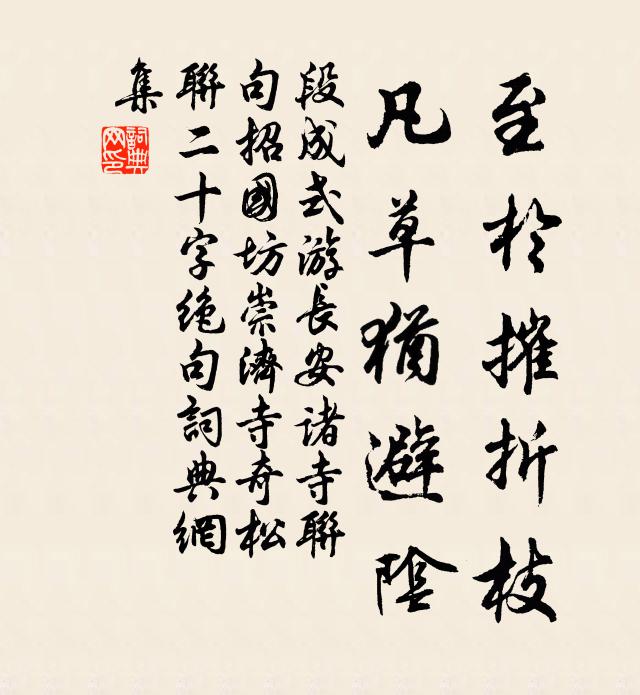 至於摧折枝
凡草猶避陰
段成式游長安诸寺聯
句招國坊崇濟寺奇松
聯二十字绝句詞典網
集
詞典
网印